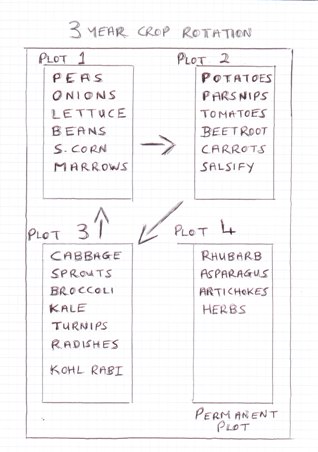 3 YEAR CROP ROTATION
PLOT 1
PEAS
ONIONS
LETTUCE
BEANS
S. CORN
MARROWS
PLOT 2
POTATOES
PARSNIPS
TOMATOES
BEETROOT
CARROTS
SALSIFY
PLOT 3
CABBAGE
SPROUTS
BROCCOLI
KALE
TURNIPS
RADISHES
KOHL RABI
PLOT 4
RHUBARB
ASPARAGUS
ARTICHOKES
HERBS
PERMANENT
PLOT